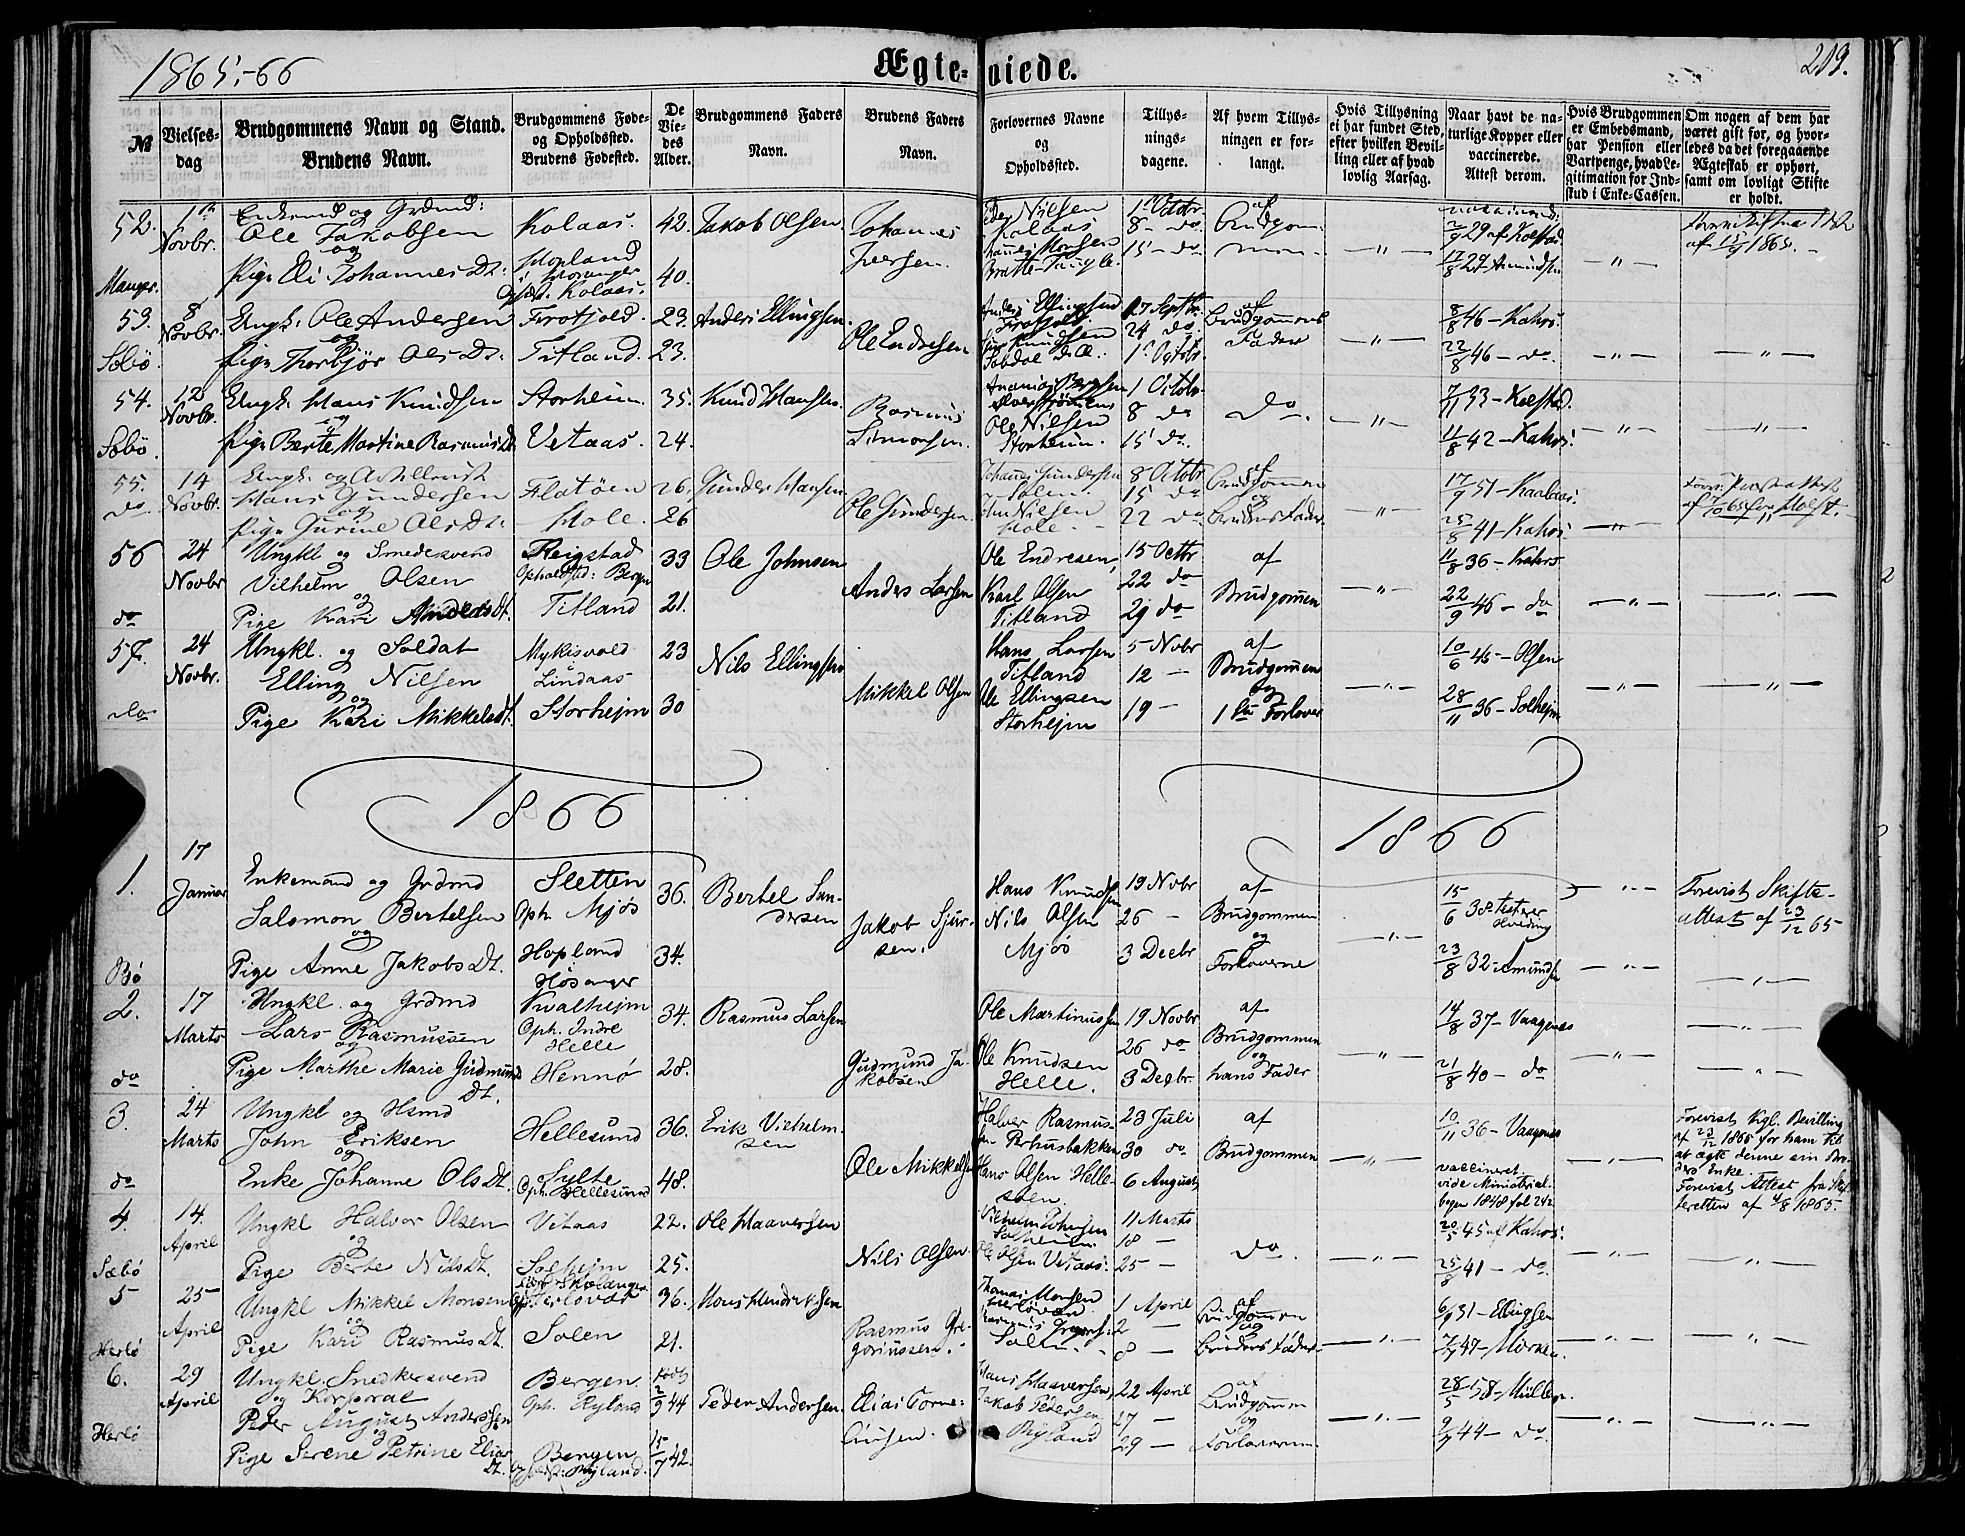 1865-66
Ægte-viede.
209.
№
Vielses-dag
Brudgommens Navn og Stand.
Brudens Navn.
Brudgommens Føde- og Opholdssted.
Brudens Fødested.
De Viedes Alder.
Brudgommens Faders Navn.
Brudens Faders Navn.
Forlovernes Navne og Opholdssted.
Tillysningsdagene.
Af hvem Tillysningen er forlangt.
Hvis Tillysning ei har fundet Sted, efter hvilken Bevilling eller af hvad lovlig Aarsag.
Naar havt de naturlige Kopper eller vaccinerede. Attest derom.
Hvis Brudgommen er Embedsmand, har Pension eller Vartpenge, hvad Legitimation for Indskud i Enke-Cassen.
Om nogen af dem har været gift før, og hvorledes da det foregaaende Ægteskab er ophørt, samt om lovligt Skifte er holdt.
52. 1ste Novbr.
Manger.
Enkemd og Grdmd:
Ole Jakobsen
og
Pige Eli Johannes Dt.
Kolaas.
Hopland
i Hosanger
Kolaas.
42.
40.
Jakob Olsen
Johannes Iversen.
Peder Nilsen
Kolaas
1 Octbr.
8 - do
15 - do
af Brudgommen
2/9 29 af Kolstad
17/8 29 Amundsen
af 15/9 1865.
53. 8 Novbr.
Sæbø.
Ungk. Ole Andersen
og
Pige Thorbjør Ols Dt.
Titland.
23.
23.
Anders Ellingsen.
Ole Endresen
Anders Ellingsen
17 Septbr.
24 do
1 Octbr.
af Brudgommens Fader
8/8 46 - Kahrs.
22/8 46 - do.
54. 12 Novbr.
Sæbø
Ungk. Hans Knudsen
og
Pige Berte Martine Rasmus Dt.
Storheim.
Vetaas.
35.
24.
Knud Hansen.
Rasmus Simonsen.
Ole Nilsen
Storheim.
1 Octobr.
8 do
15 do
Do.
7/11 33 - Kolstad.
11/8 42 - Kahrs.
55. 14 Novbr.
do.
Hans Gundersen
og
Pige Gurine Ols Dt.
Flatøen
Hole.
26.
26
Gunder Hansen
Ole Gundersen.
8 Octobr
15 do
22 do
af Brudgommen
og
Brudens Fader.
17/9 51 - Kaalaas.
25/8 41 - Kahrs.
56 24 Novbr
do
Ungkl og Smedesvend
Vilhelm Olsen
og
Pige Kari Anders Dt.
Reigstad
Opholdsted: Bergn
Titland
33
21.
Ole Johnsen
Anders Larsen
Ole Endresen,
Karl Olsen
Titland
15 Octbr
22 do
29 do
af
Brudgommen
11/8 36 - Kahrs
22/9 46 - do
57. 24 Novbr.
do
Ungkl. og Soldat
Elling Nilsen
og
Pige Kari Mikkelsdt.
Mykisvold
Lindaas
Storhejm
23
30
Nils Ellingsen
Mikkel Olsen
Hans Larsen
Titland
Ole Ellingsen
Storhejm
5 Novbr
12 -
19 -
af
Brudgommen
og
1ste Forlover
10/6 45 - Olsen
28/11 36 - Solhejm
1866
1866
1. 17 Januar
Bø
Enkemand og Grdmd
Salomon Bertelsen
og
Pige Anne Jakobs Dt.
Sletten
Oph. Mjøs
Hopland
Hosanger
36.
34.
Bertel Sandersen
Jakob Sjursen.
Hans Knudsen
Nils Olsen
Mjøs
19 Novbr
26 -
3 Decbr
af
Brudgommen
og
Forloverne
15/6 38
23/8 32 - Amundsen
Forevist Skifteattest af 23/12 65
2. 17 Marts
do
Ungkl. og Grdmd
Lars Rasmussen
og
Pige Marthe Marie Gudmunds Dt.
Kvalhejm
Oph. Indre Helle
Hennø
34.
28.
Rasmus Larsen
Gudmund Jakobsen
Ole Martinussen
Ole Knudsen
Helle.
19 Novbr
26 do
3 Decbr.
af
Brudgommen
og
hans Fader
14/8 37 - Vaagenes
21/8 40 - do
3. 24 Marts
do
Ungkl og Hsmd
John Eriksen
og
Enke Johanne Ols Dt.
Hellesund
Sylte
Oph. Hellesund
36.
48.
Erik Vilhelmsen
Ole Mikkelsen
Halver Rasmussen Perhusbakken
Hans Olsen Hellesøen
23 Juli
30 do
6 August
af
Brudgommen
10/11 36 - Vaagenes
vaccineret.
vide Ministerialbogen 1848 fol 242
Forevist Kgl. Bevilling af 23/12 1865 for ham til at ægte denne sin Broders Enke.
Forevist Attest fra Skifteretten af 4/8 1865.
4 14. April
Sæbø
Ungkl Halvor Olsen
og
Pige Berte Nils Dt.
Vetaas
Solhejm
22.
25.
Ole Haaversen
Nils Olsen.
Vilhelm Johnsen
Solheim.
Ole Olsen Vetaas.
11 Marts
18 -
25 -
do.
20/5 45 af Kahrs.
25/8 41 - do.
5 25 April
Herlø
Ungkl Mikkel Monsen
og
Pige Kari Rasmus Dt.
Solen
36.
21.
Mons Hendriksen
Rasmus Gregoriussen.
Thomas Monsen
1 April
2 -
8 -
af
Brudgommen
og
Brudens Fader.
6/9 31 - Ellingsen
7/9 47 - Morken.
6. 29 April
Herlø
Ungkl. Snedkersvend
og Korporal
Peder August Anderssen
og
Pige Serene Petrine Elias Dt.
Bergen.
Oph. Ryland
Bergen
Ryland.
født
2/9 44
15/7 42.
Peder Andersen.
Elias Corneliusen.
Hans Haaversen,
Jakob Pedersen
Ryland
22 April
27 -
29 -
af
Brudgommen
og
Forloveren
28/5 58 - Müller.
9/9 44 - do.